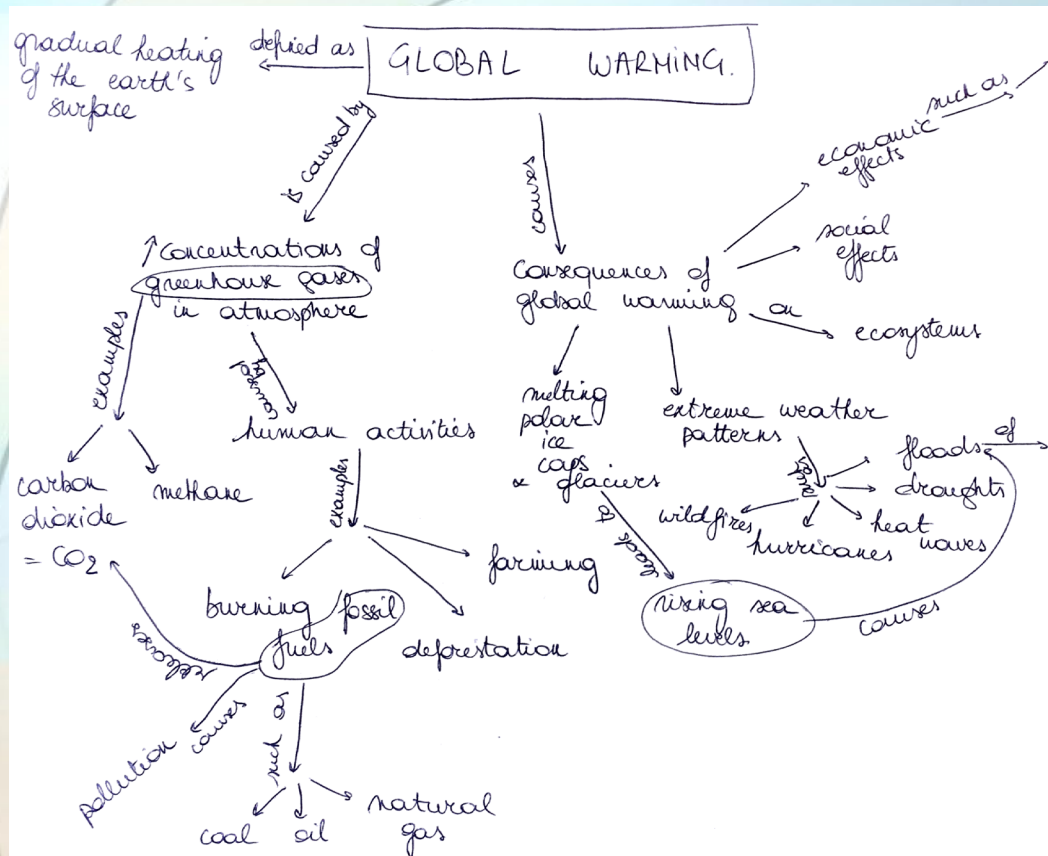 GLOBAL WARMING.
defined as
gradual heating
of the earth's
surface
is caused by
↑ concentrations of
greenhouse gases
in atmosphere
examples
carbon
dioxide
= CO2
methane
caused by
human activities
examples
burning fossil
fuels
deforestation
farming
releases
causes
pollution
such as
coal
oil
natural
gas
causes
consequences of
global warming
economic
effects
such as
social
effects
on
ecosystems
melting
polar
ice
caps
& glaciers
leads to
rising sea
levels
causes
extreme weather
patterns
floods
of
droughts
heat
waves
hurricanes
wildfires